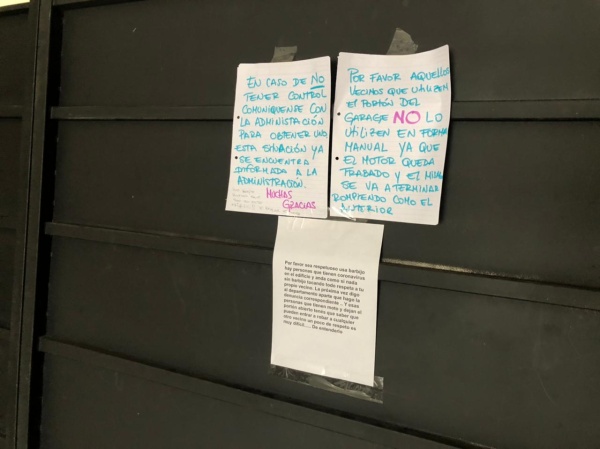 EN CASO DE NO
TENER CONTROL
COMUNIQUENSE CON
LA ADMINISTACIÓN
PARA OBTENER UNO
ESTA SITUACIÓN YA
SE ENCUENTRA
INFORMADA A LA
ADMINISTRACIÓN.
MUCHAS
GRACIAS
POR FAVOR AQUELLOS
VECINOS QUE UTILIZEN
EL PORTÓN DEL
GARAGE NO LO
UTILIZEN EN FORMA
MANUAL YA QUE
EL MOTOR QUEDA
TRABADO Y EL MISMO
SE VA A TERMINAR
ROMPIENDO COMO EL
ANTERIOR
Por favor sea respetuoso use barbijo
hay personas que tienen coronavirus
en el edificio y anda como si nada
sin barbijo tocando todo respete a tu
propio vecino. La próxima vez digo
el departamento aparte que hago la
denuncia correspondiente ... Y esas
personas que tienen moto y dejan el
portón abierto tenés que saber que
pueden entrar a robar a cualquier
otro vecino un poco de respeto es
muy difícil..... De entenderlo